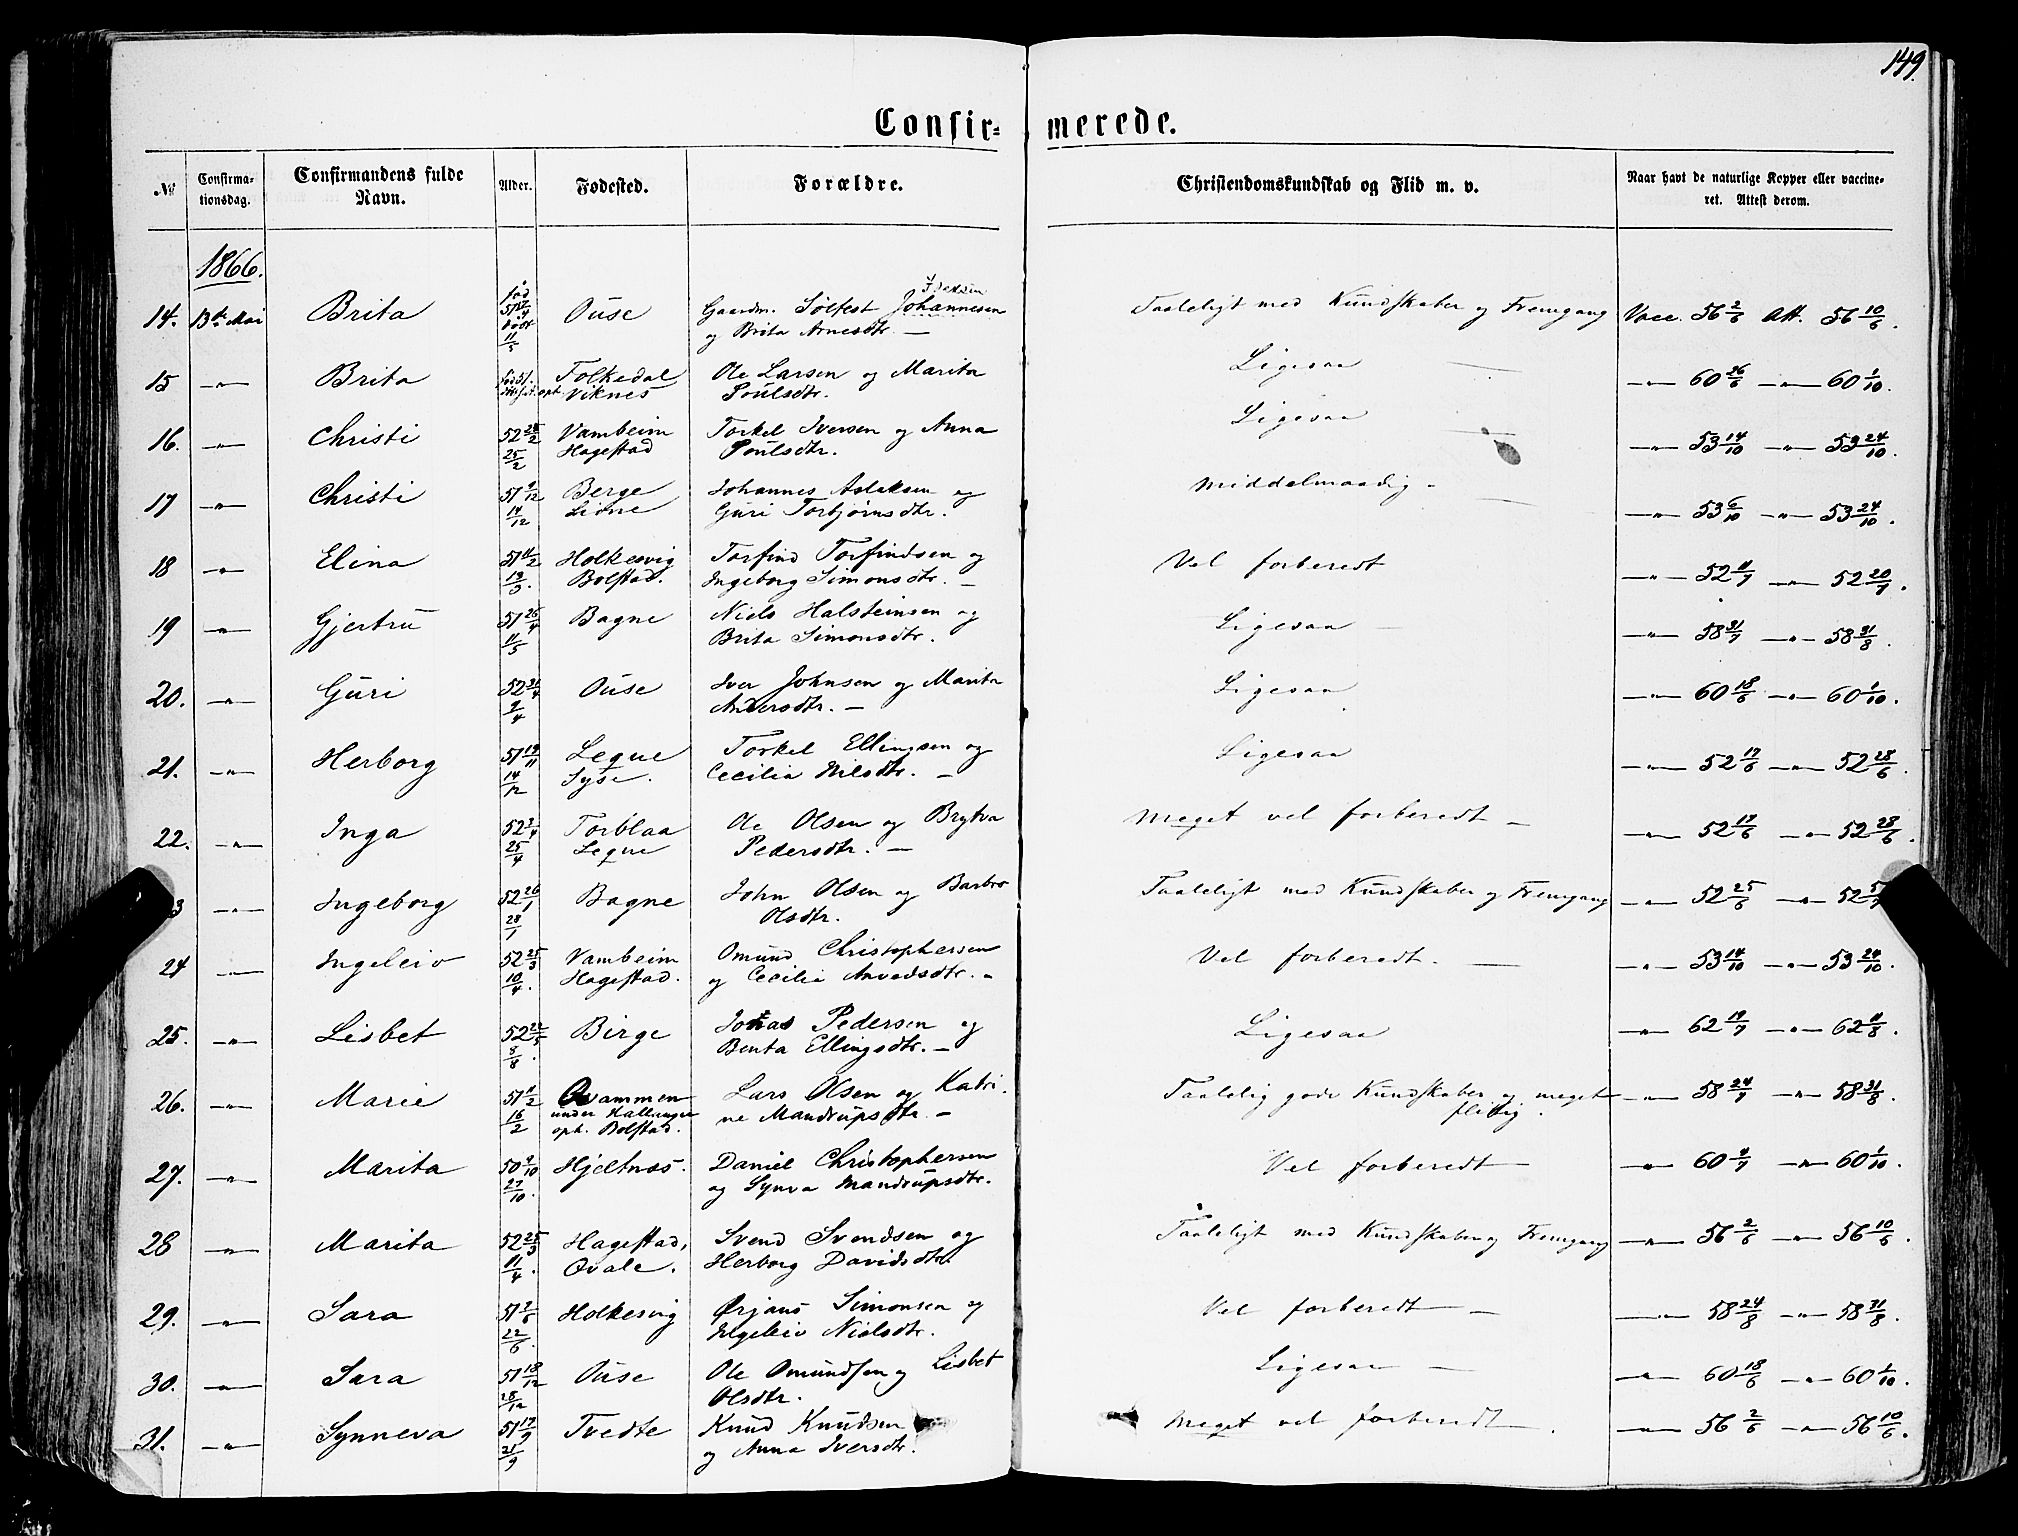 149.
Confir= merede.
№ Confirma= tionsdag. Confirmandens fulde Navn. Alder. Fødested. Forældre. Christendomskundskab og Flid m. v. Naar havt de naturlige Kopper eller vaccine= ret. Attest derom.
1866.
14. 13de Mai Brita fød 51 døbt 11/5 Ouse Gaardm. Solfest Johannesen og Brita Arnesdtr. — Taaleligt med Kundskaber og Fremgang Vacc. 56 2/6 Att. 56 10/6.
15 —"— Brita Folkedal oph. Viknes Ole Larsen og Marita Poulsdtr. Ligesaa — —"— 60 26/6 —"— 60 1/10.
16. —"— Christi 52 25/2 Vambeim Hagestad Torkel Iversen og Anna Poulsdtr. Ligesaa — —"— 53 14/10 —"— 53 24/10.
17 —"— Christi 51 9/12 14/12 Berge Lione Johannes Aslaksen og Guri Torbjørnsdtr. Middelmaadig — —"— 53 6/10 —"— 53 24/10.
18 —"— Elina 51 Holkesvig Bolstad. Torfind Torfindsen og Ingeborg Simonsdtr. — Vel forberedt —"— 52 11/7 —"— 52 20/7.
19 —"— Gjertru 51 26/4 11/5 Bagne Niels Halsteinsen og Brita Simonsdtr. Ligesaa — —"— 58 31/7 —"— 58 31/8.
20. —"— Guri 52 Ouse Iver Johnsen og Marita Andersdtr. — Ligesaa —"— 60 18/6 —"— 60 1/10.
21. —"— Herborg 51 19/11 14/12 Leque Syse. Torkel Ellingsen og Cecilia Nilsdtr. — Ligesaa —"— 52 17/6 —"— 52 28/6.
22. —"— Inga 52 3/4 25/4 Torblaa Leque Ole Olsen og Brytva Pedersdtr. — Meget vel forberedt — —"— 52 17/6 —"— 52 28/6.
3 —"— Ingeborg 52 26/1 28/1 Bagne John Olsen og Barbro Olsdtr. Taaleligt med Kundskaber og Fremgang —"— 52 25/6 —"— 52
24 —"— Ingeleiv 52 25/3 10/4. Vambeim Hagestad. Omund Christophersen og Cecilia Arvedsdtr. — Vel forberedt. — —"— 53 14/10 —"— 53 24/10.
25. —"— Lisbet 52 8/8. Birge Jonas Pedersen og Benta Ellingsdtr. — Ligesaa —"— 62 19/7 —"— 62 11/8
26. —"— Marie 51 1/2 16/2 Qvammen under Hallanger oph. Bolstad. Lars Olsen og Katri- ne Mandrupsdtr. — Taalelig gode Kundskaber og meget flittig. —"— 58 24/7 —"— 58 31/8.
27. —"— Marita 50 9/10 27/10. Hjeltnæs. Daniel Christophersen og Synva Mandrupsdtr. Vel forberedt — —"— 60 9/7 —"— 60 1/10.
28 —"— Marita 52 25/3 11/4. Hagestad, Qvale. Svend Svendsen og Herborg Davidsdtr. Taaleligt med Kundskaber og Fremgang —"— 56 2/6 —"— 56 10/6.
29. —"— Sara 51 22/6. Holkesvig Ørjans Simonsen og Ingeleiv Nielsdtr. Vel forberedt — —"— 58 24/8 —"— 58 31/8.
30. —"— Sara 51 18/12 28/12 Ouse Ole Omundsen og Lisbet Olsdtr. Ligesaa — —"— 60 18/6 —"— 60 1/10.
31. —"— Synneva 51 17/9 21/9 Tvedte Knud Knudsen og Anna Iversdtr. Meget vel forberedt. —"— 56 2/6 —"— 56 10/6.